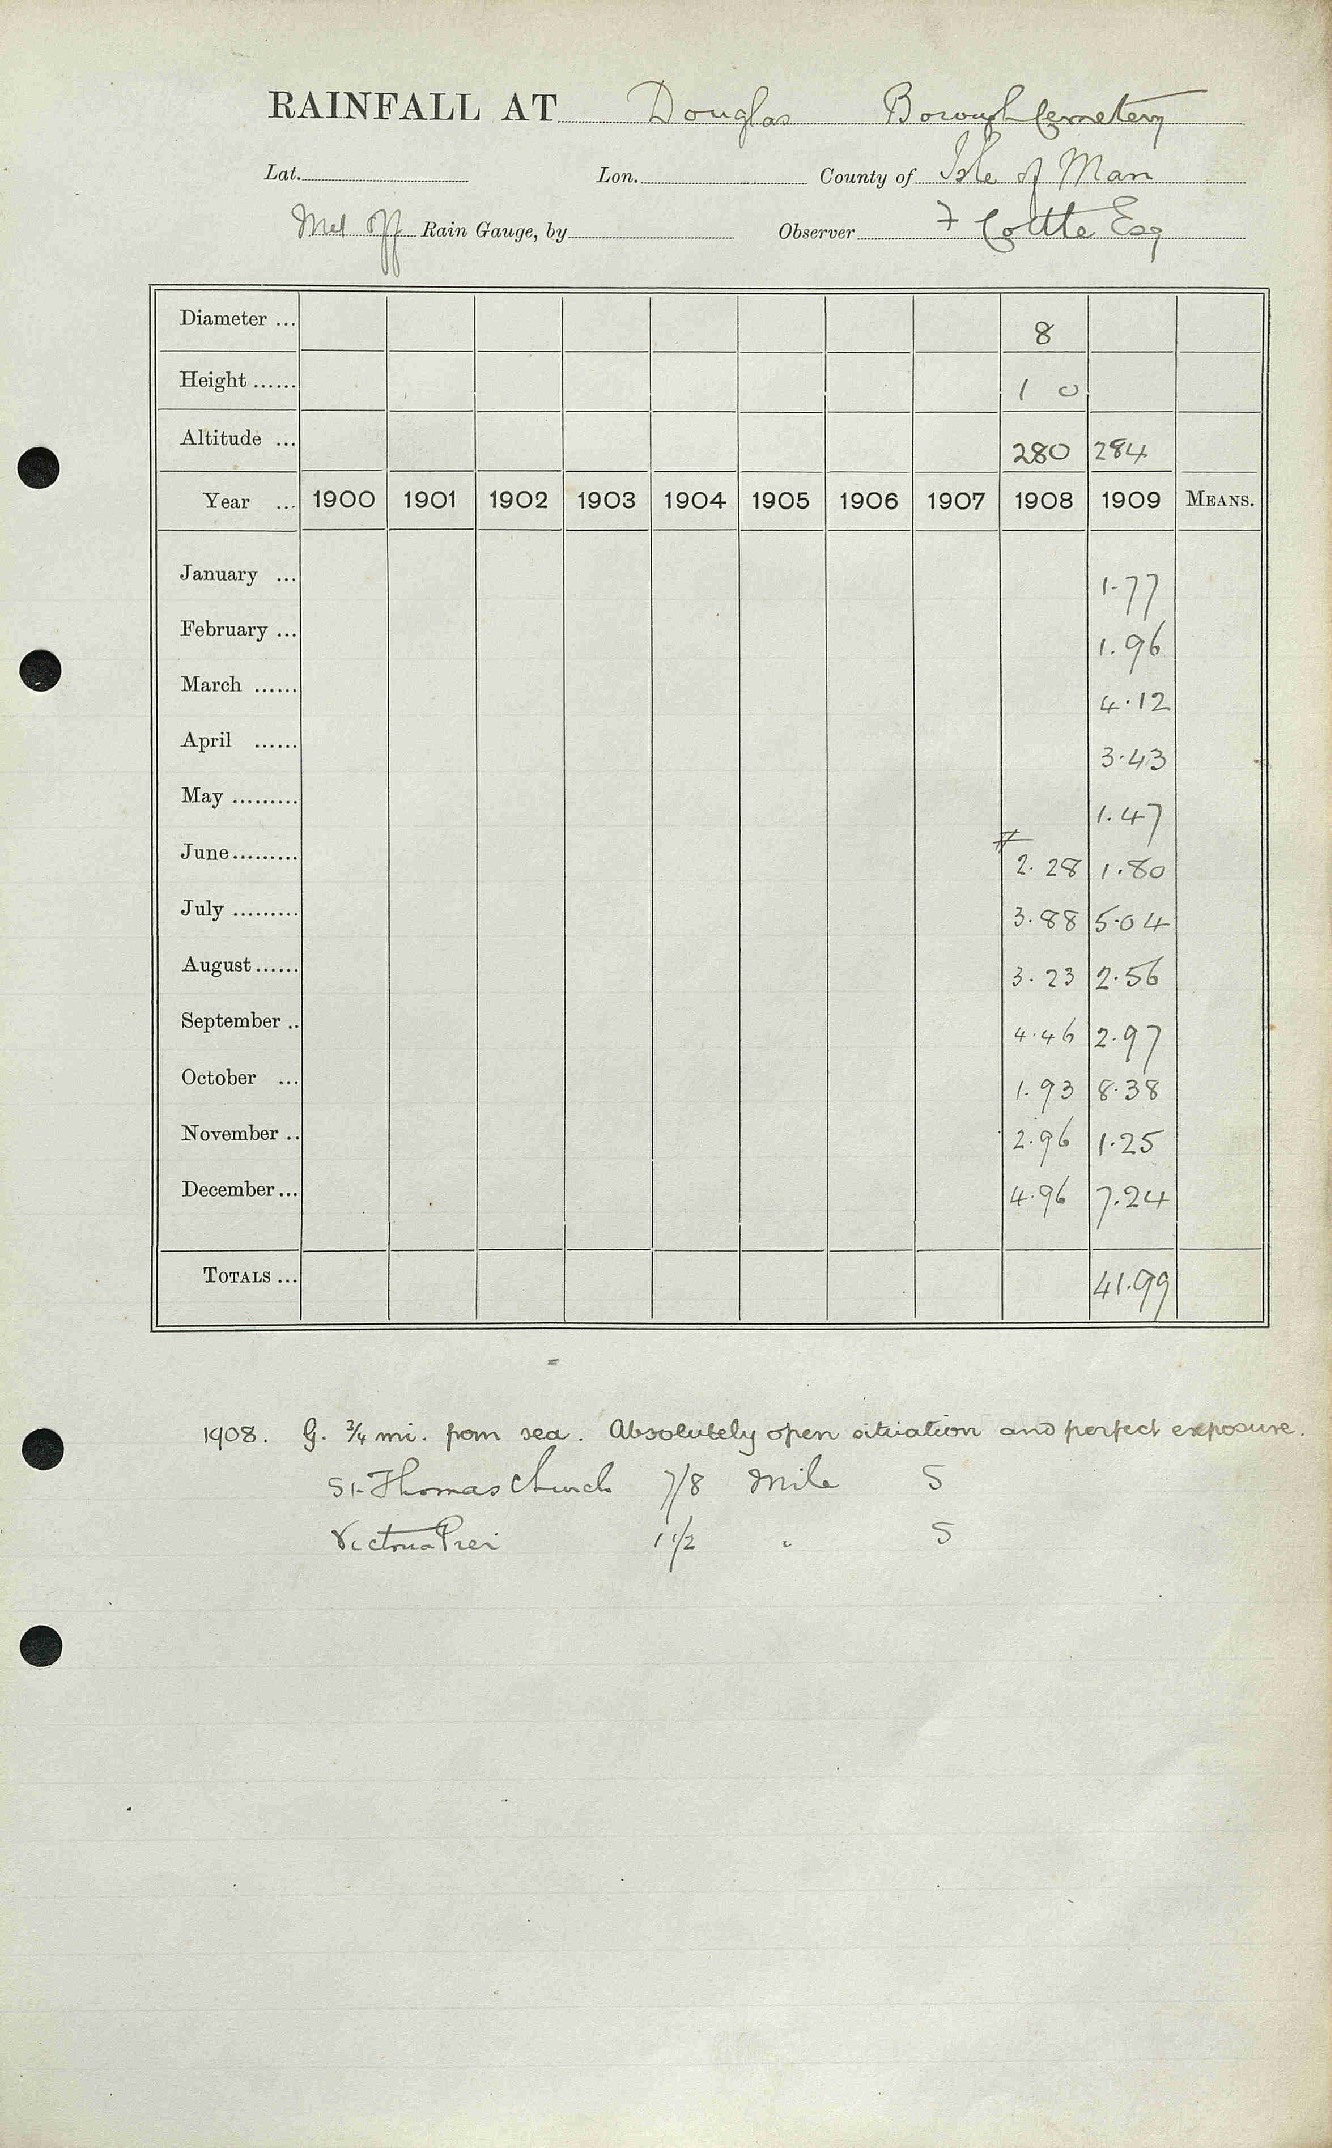 RAINFALL AT Douglas Borough Cemetery
Lat. Lon. County of Isle of Man
Met Off Rain Gauge, by Observer F Cottle Esq
Diameter ... 8
Height ...... 1 0
Altitude ... 280 284
Year ... 1900 1901 1902 1903 1904 1905 1906 1907 1908 1909 MEANS.
January ... 1.77
February ... 1.96
March ...... 4.12
April ...... 3.43
May ......... 1.47
June ......... 2.28 1.80
July ......... 3.88 5.04
August ...... 3.23 2.56
September .. 4.46 2.97
October ... 1.93 8.38
November .. 2.96 1.25
December ... 4.96 7.24
TOTALS ... 41.99
1908. G. 3/4 mi. from sea. Absolutely open situation and perfect exposure.
St Thomas Church 7/8 Mile S
Victoria Pier 1 1/2 " S